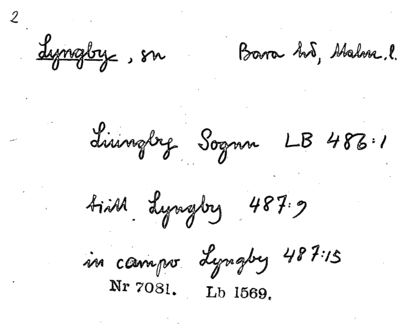 2
Lyngby, sn Bara hd, Malm. l.
Liungby Sognn LB 486:1
till Lyngby 487:9
in campo Lyngby 487:15
Nr 7081. Lb 1569.